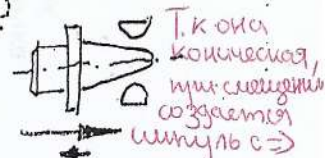 Т.к она
коническая,
при смещении
создается
импульс =>